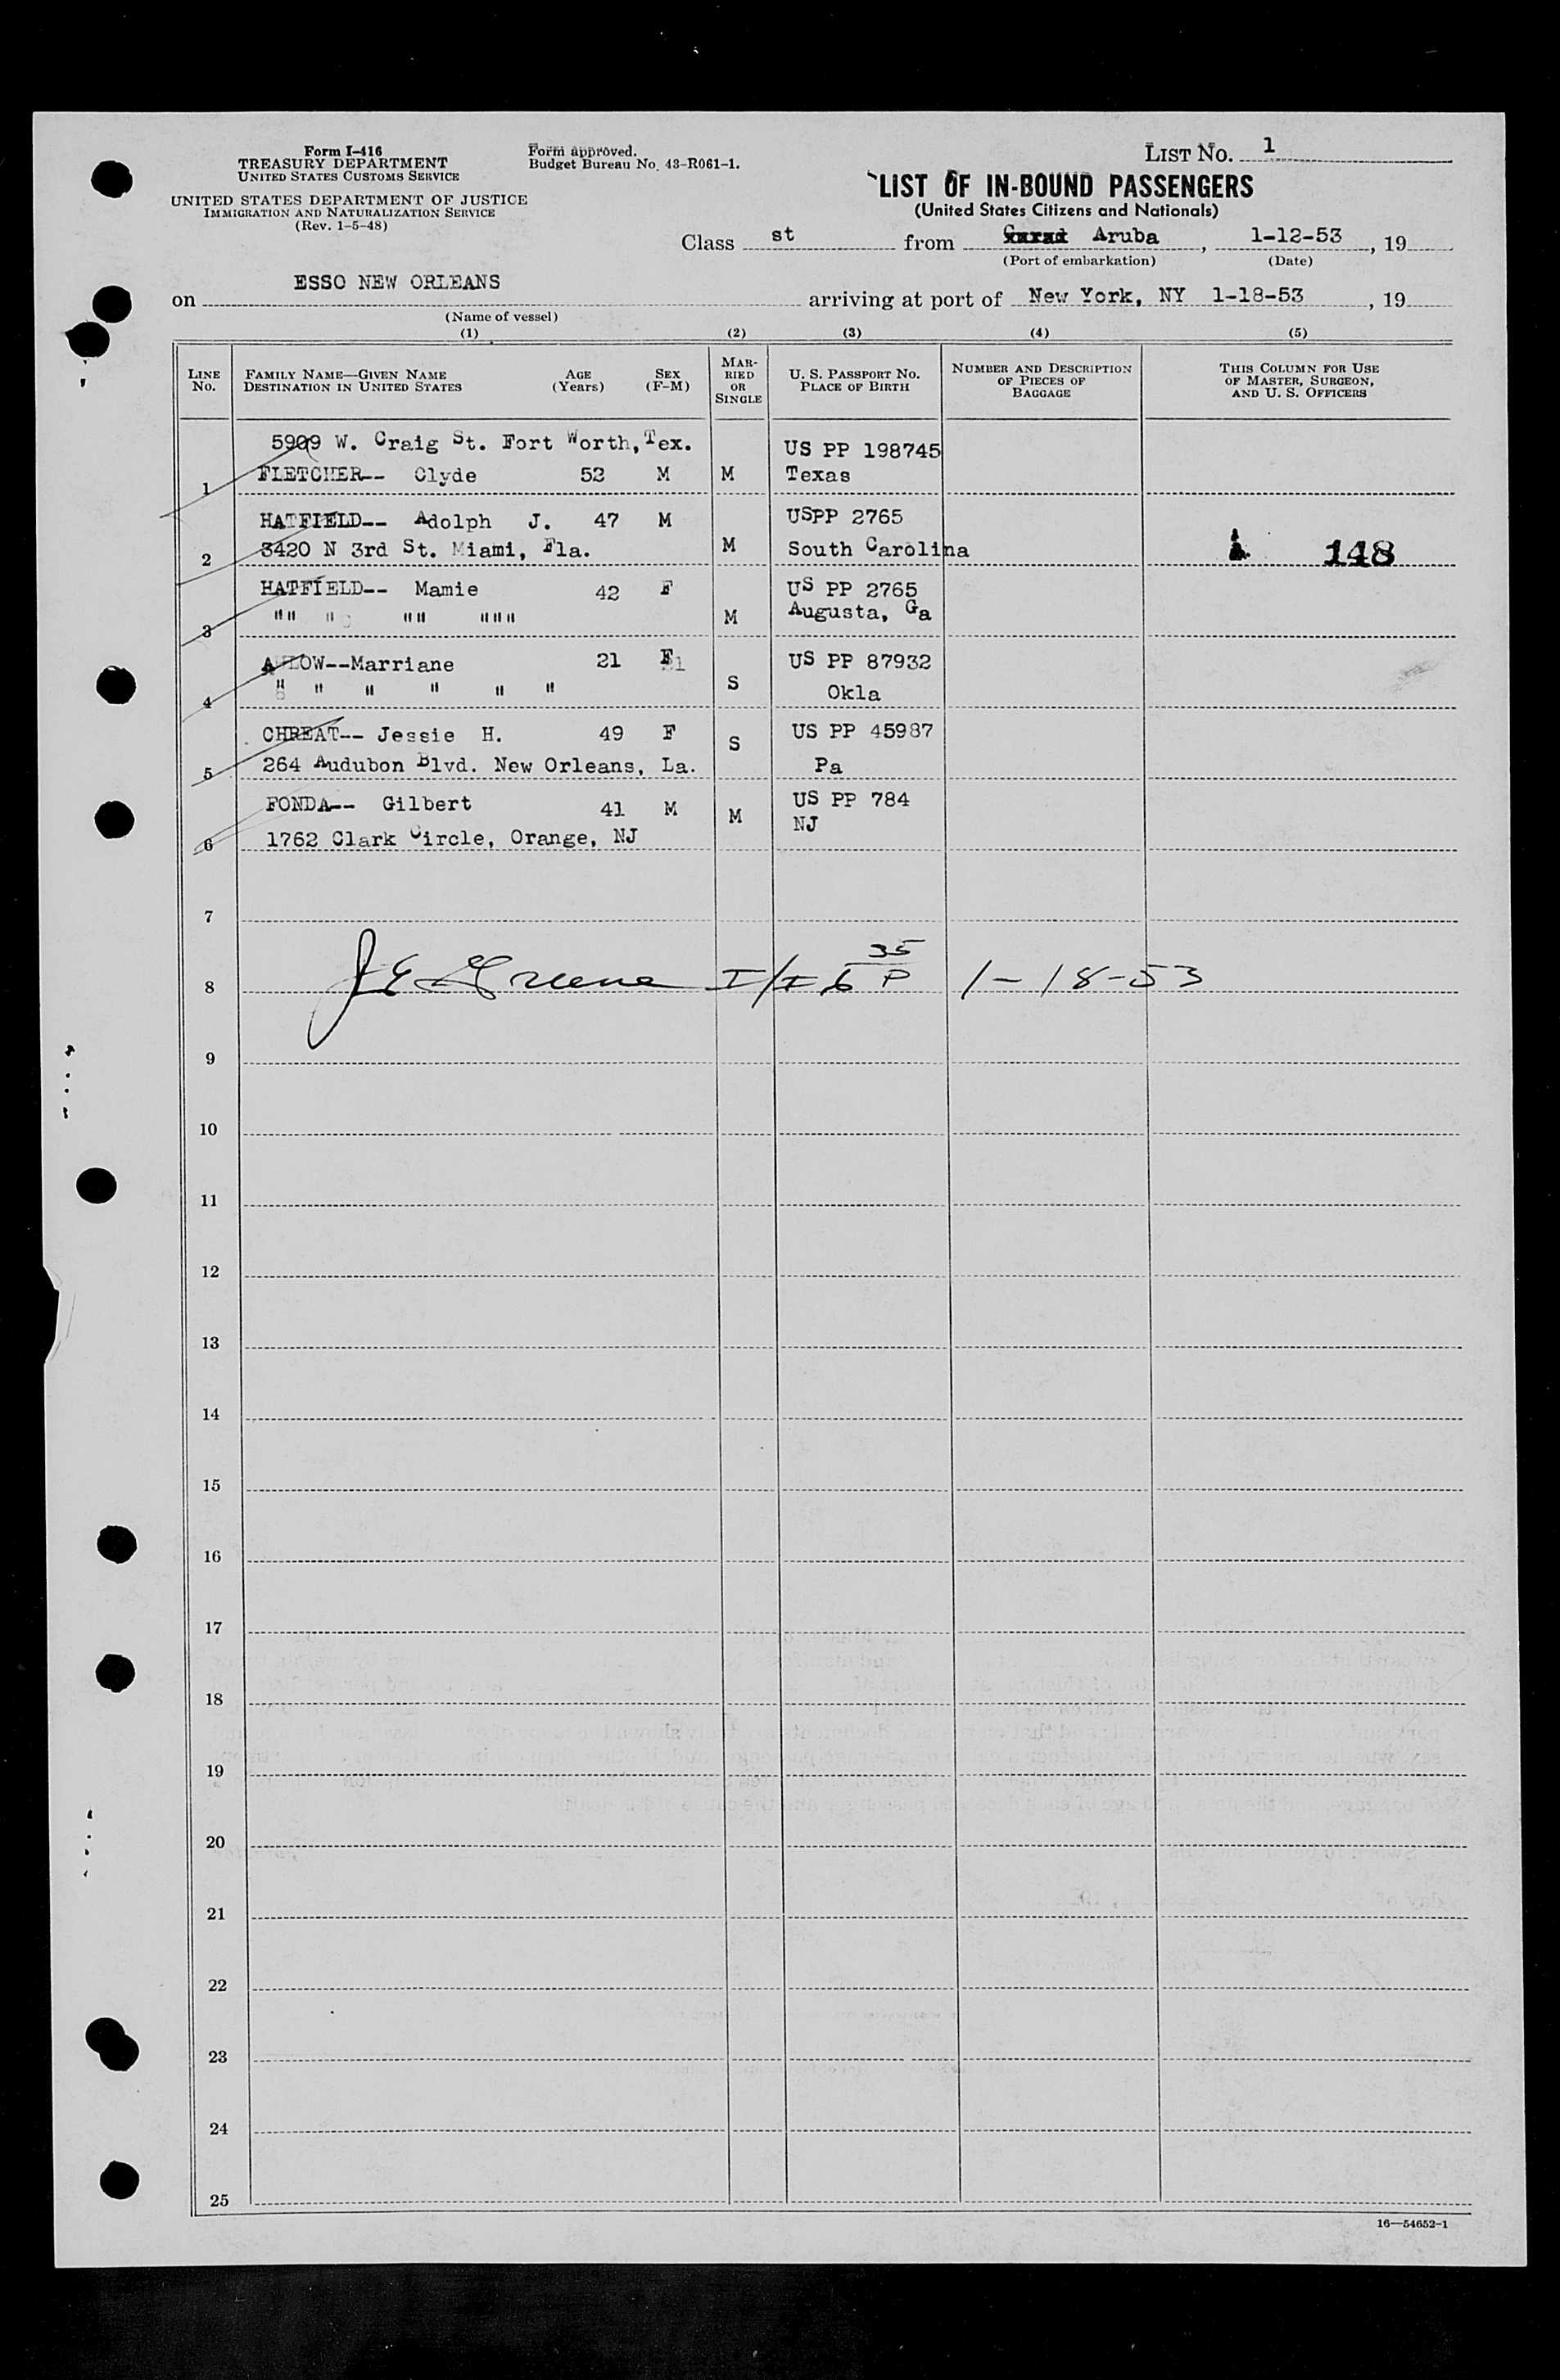 Form I-416
TREASURY DEPARTMENT
UNITED STATES CUSTOMS SERVICE
UNITED STATES DEPARTMENT OF JUSTICE
IMMIGRATION AND NATURALIZATION SERVICE
(Rev. 1-5-48)
Form approved.
Budget Bureau No. 43-R061-1.
LIST NO. 1
LIST OF IN-BOUND PASSENGERS
(United States Citizens and Nationals)
Class st from Aruba, 1-12-53, 19
(Port of embarkation) (Date)
on ESSO NEW ORLEANS arriving at port of New York, NY 1-18-53, 19
(Name of vessel)
(1) (2) (3) (4) (5)
LINE NO.
FAMILY NAME—GIVEN NAME
DESTINATION IN UNITED STATES
AGE (Years)
SEX (F-M)
MARRIED OR SINGLE
U. S. PASSPORT NO.
PLACE OF BIRTH
NUMBER AND DESCRIPTION OF PIECES OF BAGGAGE
THIS COLUMN FOR USE OF MASTER, SURGEON, AND U. S. OFFICERS
5909 W. Craig St. Fort Worth, Tex. US PP 198745
1 FLETCHER-- Clyde 52 M M Texas
HATFIELD-- Adolph J. 47 M USPP 2765
2 3420 N 3rd St. Miami, Fla. M South Carolina 148
HATFIELD-- Mamie 42 F US PP 2765
3 "" " "" """ M Augusta, Ga
OW--Marriane 21 F US PP 87932
4 " " " " " " S Okla
CHREAT-- Jessie H. 49 F S US PP 45987
5 264 Audubon Blvd. New Orleans, La. Pa
FONDA-- Gilbert 41 M M US PP 784
6 1762 Clark Circle, Orange, NJ NJ
7
8 J E Greene I/I 6 35 P 1-18-53
9
10
11
12
13
14
15
16
17
18
19
20
21
22
23
24
25
16—54652-1